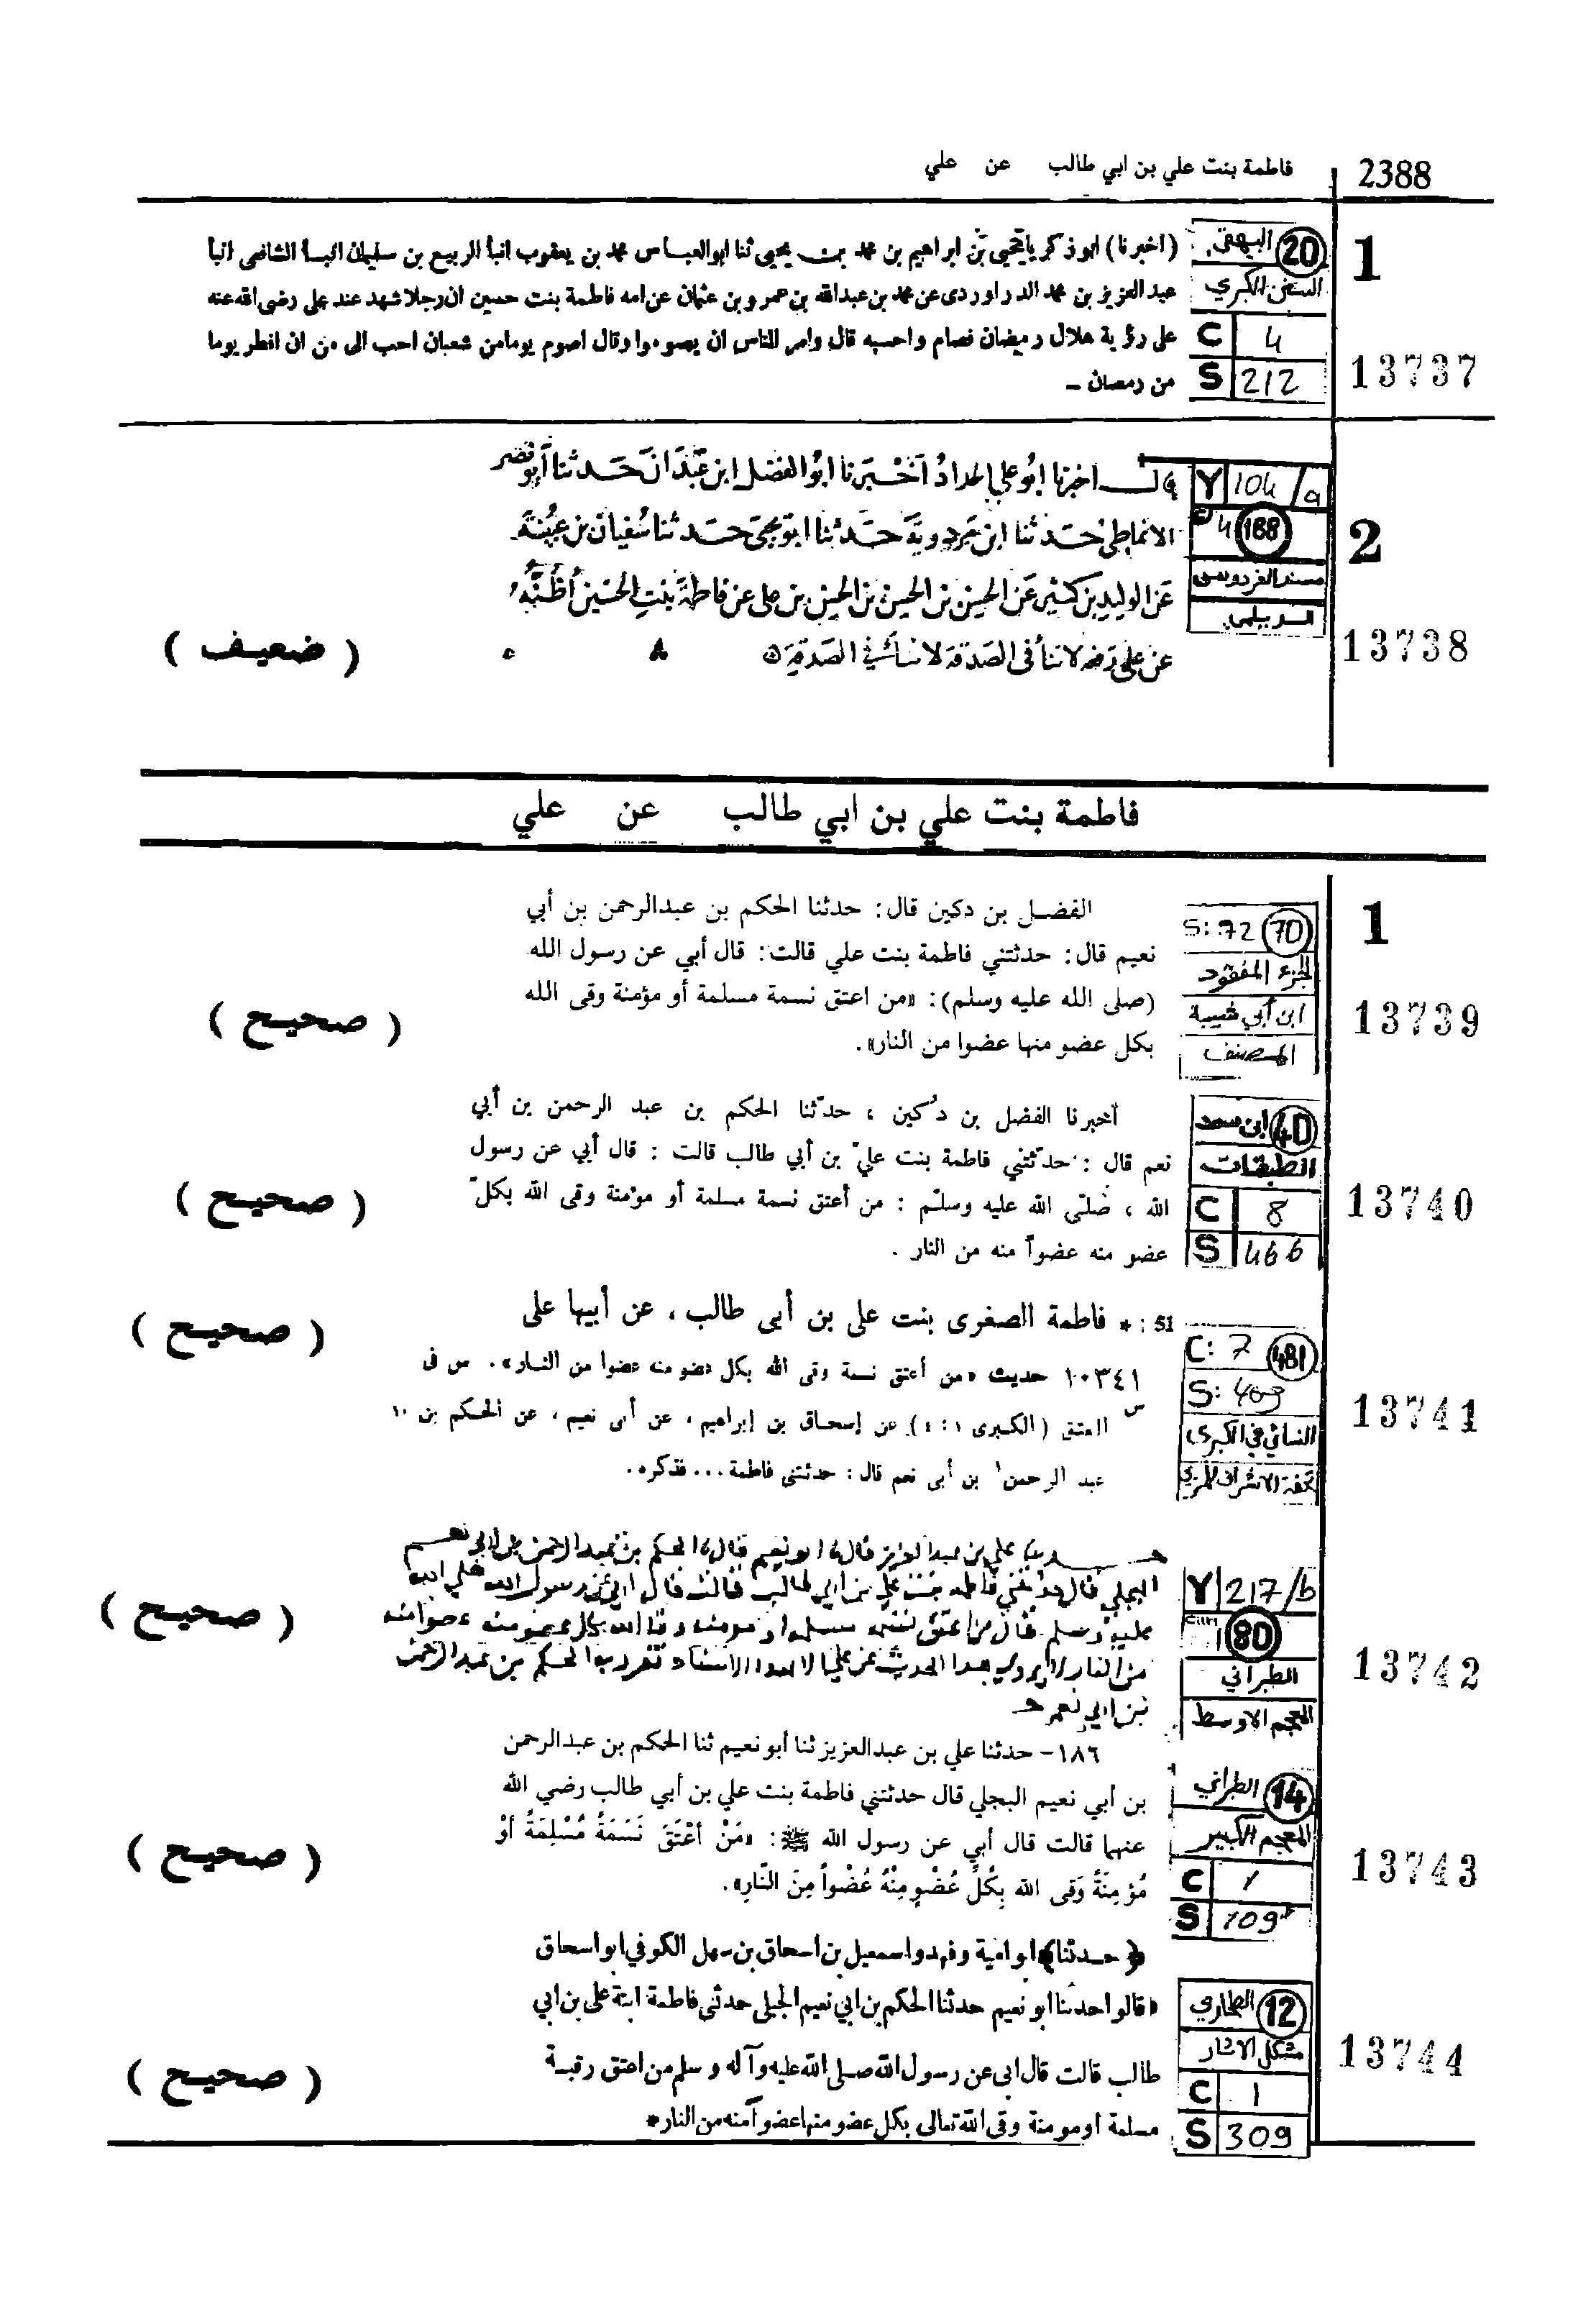 2388 فاطمة بنت علي بن ابي طالب عن علي
1
13737
20 البيهقي
السنن الكبرى
C 4
S 212
(اخبرنا) ابو زكريا يحيى بن ابراهيم بن محمد بن يحيى ثنا ابو العباس محمد بن يعقوب انبأ الربيع بن سليمان انبأ الشافعى انبأ
عبد العزيز بن محمد الدراوردى عن محمد بن عبدالله بن عمرو بن عثمان عن امه فاطمة بنت حسين ان رجلا شهد عند على رضى الله عنه
على رؤية هلال رمضان فصام واحسبه قال وامر الناس ان يصوموا وقال اصوم يوما من شعبان احب الى من ان افطر يوما
من رمضان ـ
2
13738
Y 104/a
188
مسند الفردوس
الديلمي
قال اخبرنا ابو علي الحداد أخبرنا ابو الفضل ابن عبدان حدثنا أبو نصر
الانماطي حدثنا ابن مردوية حدثنا ابو يحيى حدثنا سفيان بن عيينة
عن الوليد بن كثير عن الحسن بن الحسن بن الحسن بن على عن فاطمة بنت الحسين أظنه
عن علي لا ثنا في الصدقة
( ضعيف )
فاطمة بنت علي بن ابي طالب عن علي
1
13739
S: 72 70
الجزء المفقود
ابن أبي شيبة
المصنف
الفضل بن دكين قال: حدثنا الحكم بن عبدالرحمن بن أبي
نعيم قال: حدثتني فاطمة بنت علي قالت: قال أبي عن رسول الله
(صلى الله عليه وسلم): «من اعتق نسمة مسلمة أو مؤمنة وقى الله
بكل عضو منها عضوا من النار».
( صحيح )
13740
40 ابن سعد
الطبقات
C 8
S 466
أخبرنا الفضل بن دُكين ، حدّثنا الحكم بن عبد الرحمن بن أبي
نعم قال : حدّثتني فاطمة بنت عليّ بن أبي طالب قالت : قال أبي عن رسول
الله ، صَلّى الله عليه وسلّم : من أعتق نسمة مسلمة أو مؤمنة وقى الله بكلّ
عضو منه عضواً منه من النار .
( صحيح )
13741
C: 7 481
S: 409
النسائي في الكبرى
تحفة الاشراف للمزي
51 : * فاطمة الصغرى بنت على بن أبى طالب ، عن أبيها على
١٠٣٤١ حديث «من أعتق نسمة وقى الله بكل عضو منه عضوا من النار». س فى
س العتق (الكبرى ١ : ٤) عن إسحاق بن إبراهيم ، عن أبى نعيم ، عن الحكم بن ١٠
عبد الرحمن بن أبى نعم قال : حدثتنى فاطمة... فذكره.
( صحيح )
13742
Y 217/b
80
الطبراني
المعجم الاوسط
حدثنا علي بن عبد العزيز قال نا ابو نعيم قال نا الحكم بن عبد الرحمن بن ابي نعيم
البجلي قال حدثتني فاطمه بنت علي بن ابي طالب قالت قال ابي عن رسول الله صلي الله
عليه وسلم قال من اعتق نسمه مسلمه او مومنه وقا الله بكل عضو منه عضوا منه
من النار لا يروي هدا الحديث عن علي الا بهدا الاسناد تفرد به الحكم بن عبد الرحمن
بن ابي نعم
( صحيح )
13743
14 الطبراني
المعجم الكبير
C 1
S 109
١٨٦ - حدثنا علي بن عبدالعزيز ثنا أبو نعيم ثنا الحكم بن عبدالرحمن
بن أبي نعيم البجلي قال حدثتني فاطمة بنت علي بن أبي طالب رضي الله
عنهما قالت قال أبي عن رسول الله ﷺ: «مَنْ أَعْتَقَ نَسَمَةً مُسْلِمَةً أوْ
مُؤمِنَةً وَقى الله بِكُلِّ عُضْوٍ مِنْهُ عُضْواً مِنَ النّارِ».
( صحيح )
13744
12 الطحاوي
مشكل الاثار
C 1
S 309
﴿ حدثنا ﴾ ابو امية وفهد واسمعيل بن اسحاق بن سهل الكوفي ابو اسحاق
قالوا حدثنا ابو نعيم حدثنا الحكم بن ابي نعيم الجبلى حدثنى فاطمة ابنة على بن ابي
طالب قالت قال ابى عن رسول الله صلى الله عليه وآله وسلم من اعتق رقبة
مسلمة او مومنة وقى الله تعالى بكل عضو منها عضوا منه من النار*
( صحيح )